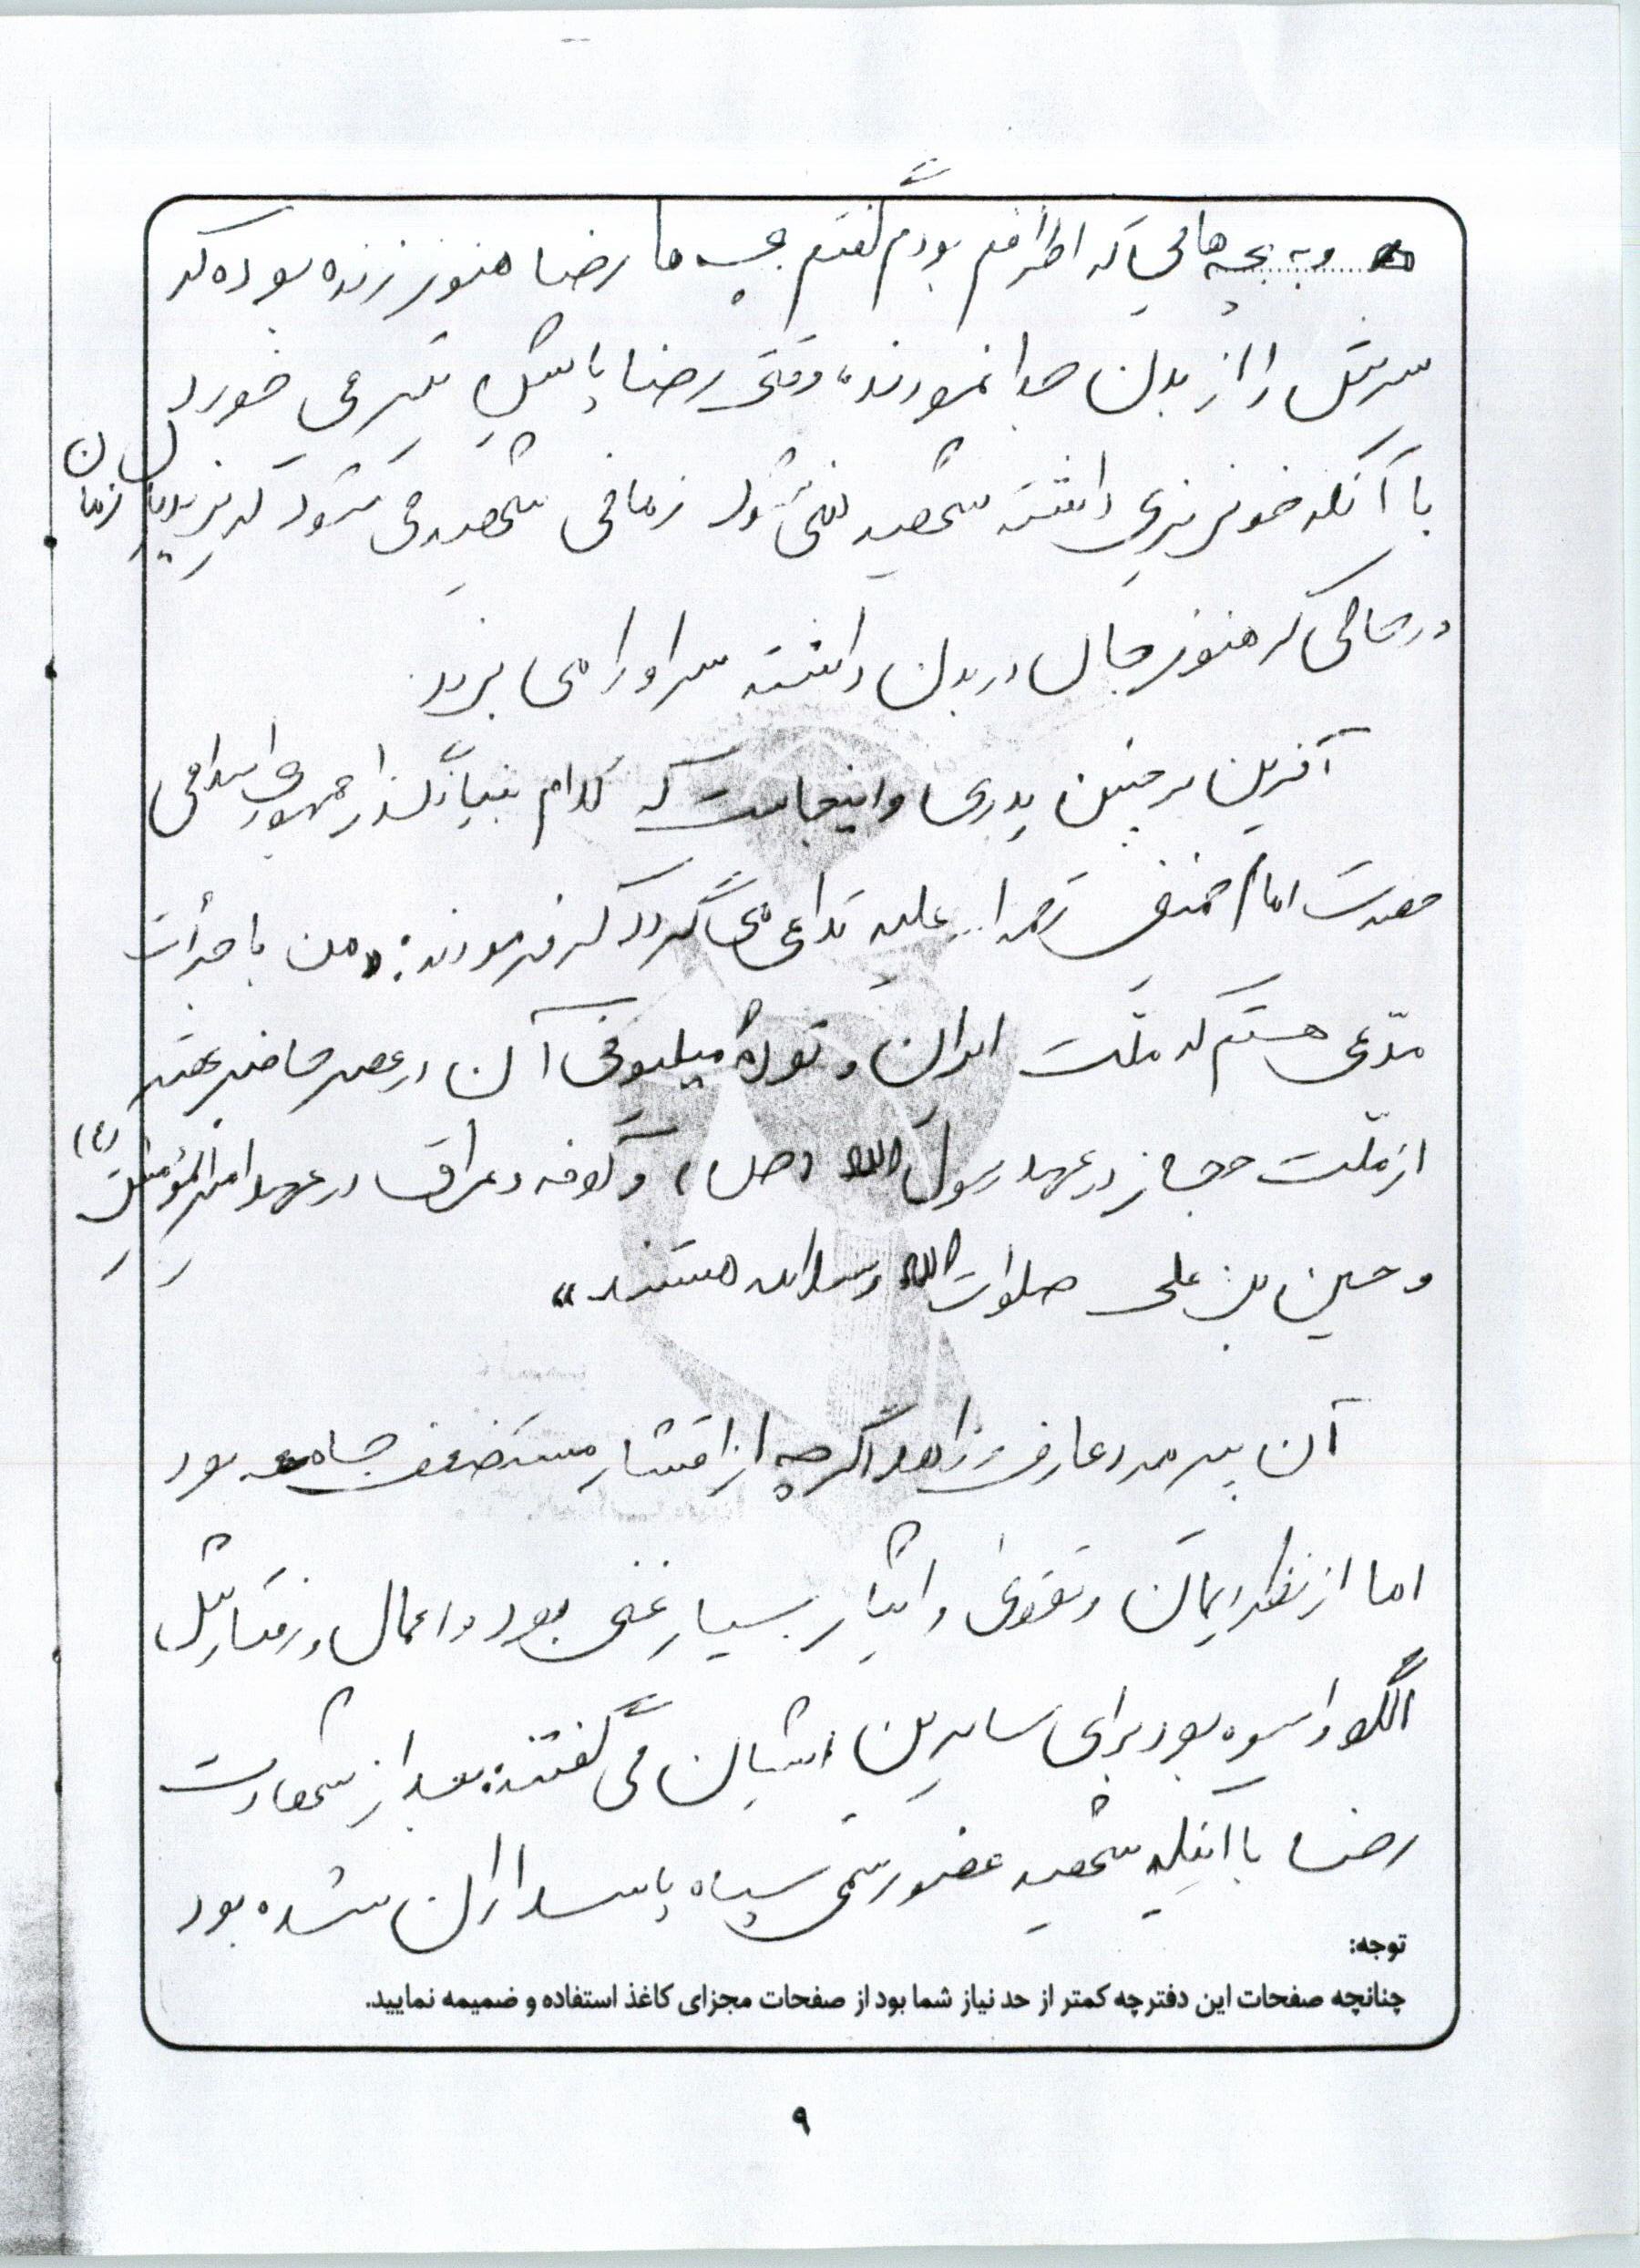 و به بچه هایی که اطرافم بودم گفتم بچه ها رضا هنوز زنده بوده که
سرش را از بدن جدا نمودند، وقتی رضا پایش تیر می خورد
با آنکه خونریزی داشته شهید نمی شود زمانی شهید می شود که یزیدیان زمان
در حالی که هنوز جان در بدن داشته سر او را می برند
آفرین بر چنین پدری و اینجاست که کلام بنیانگذار جمهوری اسلامی
حضرت امام خمینی رحمة ا... علیه تداعی می گردد که فرمودند: «من با جرأت
مدّعی هستم که ملّت ایران و تودهٔ میلیونی آن در عصر حاضر بهتر
از ملّت حجاز در عهد رسول الله (ص) و کوفه و عراق در عهد امیرالمؤمنین (ع)
و حسین بن علی صلوات الله و سلامه هستند»
آن پیرمرد عارف و زاهد اگرچه از اقشار مستضعف جامعه بود
اما از نظر ایمان و تقوی و ایثار بسیار غنی بود و اعمال و رفتارش
الگو و اسوه بود برای سایرین ایشان می گفتند بعد از شهادت
رضا با اینکه شهید عضو رسمی سپاه پاسداران شده بود
توجه:
چنانچه صفحات این دفترچه کمتر از حد نیاز شما بود از صفحات مجزای کاغذ استفاده و ضمیمه نمایید.
۹